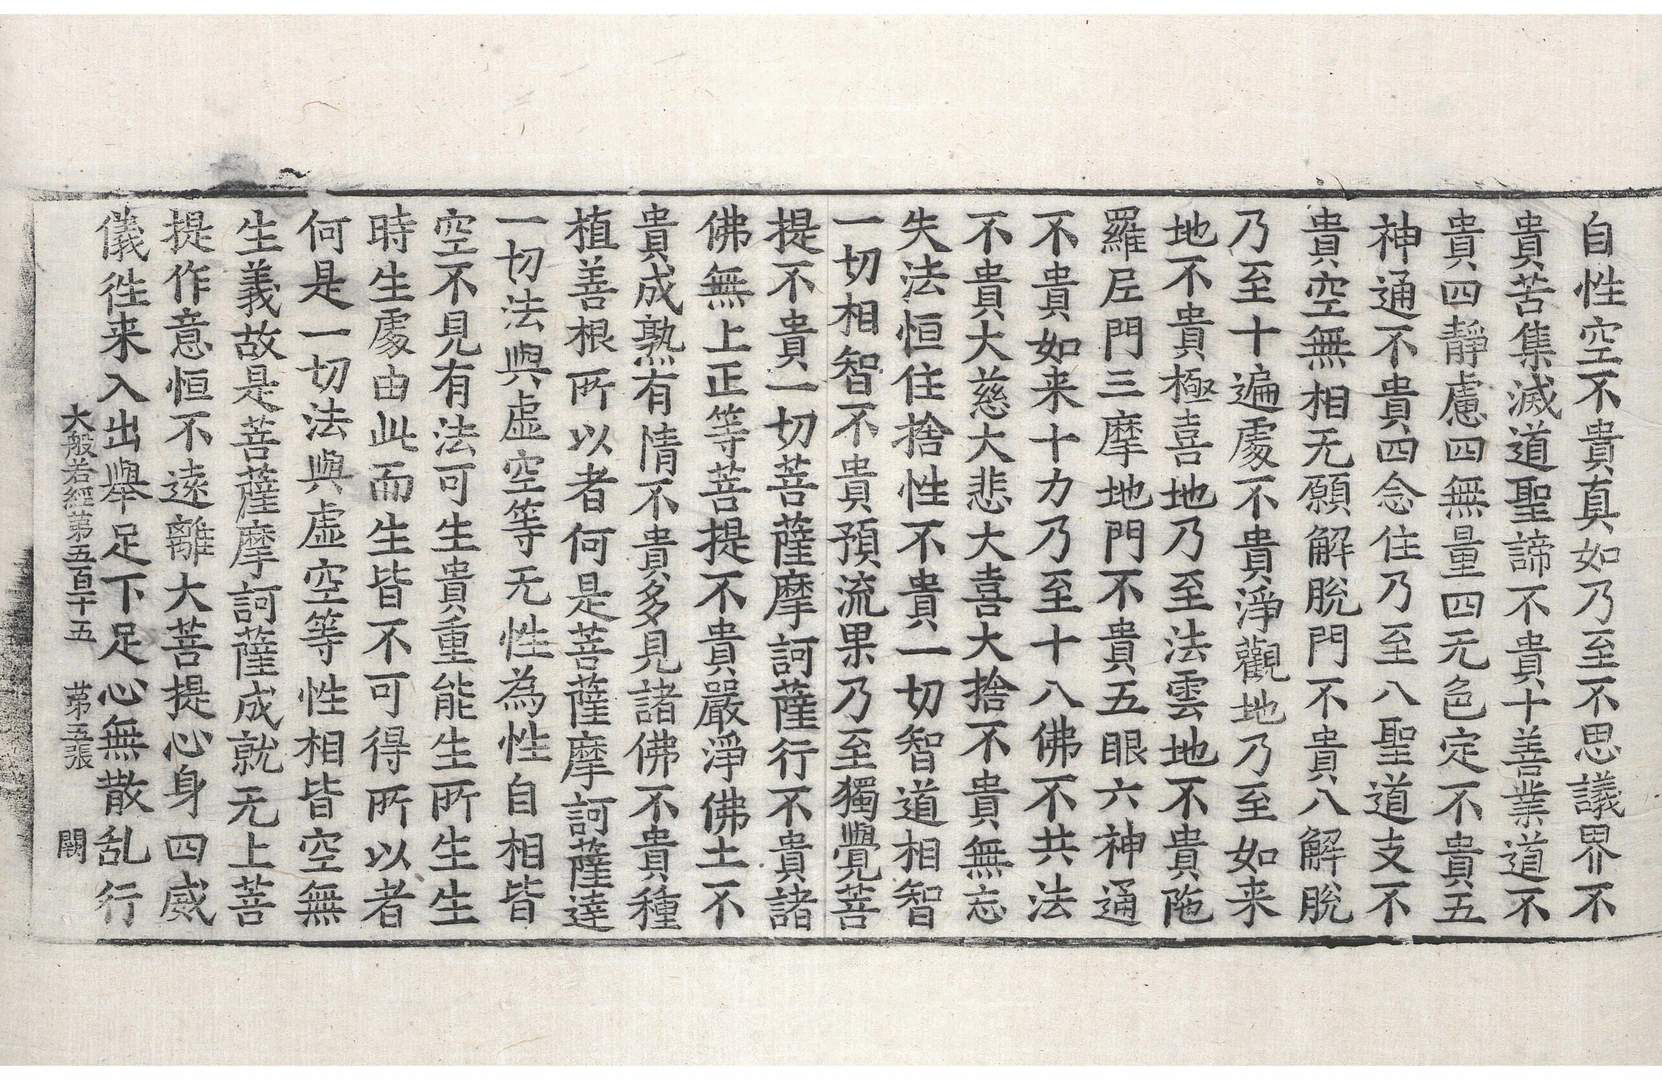 自性空不貴真如乃至不思議界不
貴苦集滅道聖諦不貴十善業道不
貴四靜慮四無量四无色定不貴五
神通不貴四念住乃至八聖道支不
貴空無相无願解脫門不貴八解脫
乃至十遍處不貴淨觀地乃至如来
地不貴極喜地乃至法雲地不貴陁
羅尼門三摩地門不貴五眼六神通
不貴如来十力乃至十八佛不共法
不貴大慈大悲大喜大捨不貴無忘
失法恒住捨性不貴一切智道相智
一切相智不貴預流果乃至獨覺菩
提不貴一切菩薩摩訶薩行不貴諸
佛無上正等菩提不貴嚴淨佛土不
貴成熟有情不貴多見諸佛不貴種
植善根所以者何是菩薩摩訶薩達
一切法與虛空等无性為性自相皆
空不見有法可生貴重能生所生生
時生處由此而生皆不可得所以者
何是一切法與虛空等性相皆空無
生義故是菩薩摩訶薩成就无上菩
提作意恒不遠離大菩提心身四威
儀徃来入出舉足下足心無散乱行
大般若經苐五百十五 苐五張 闕